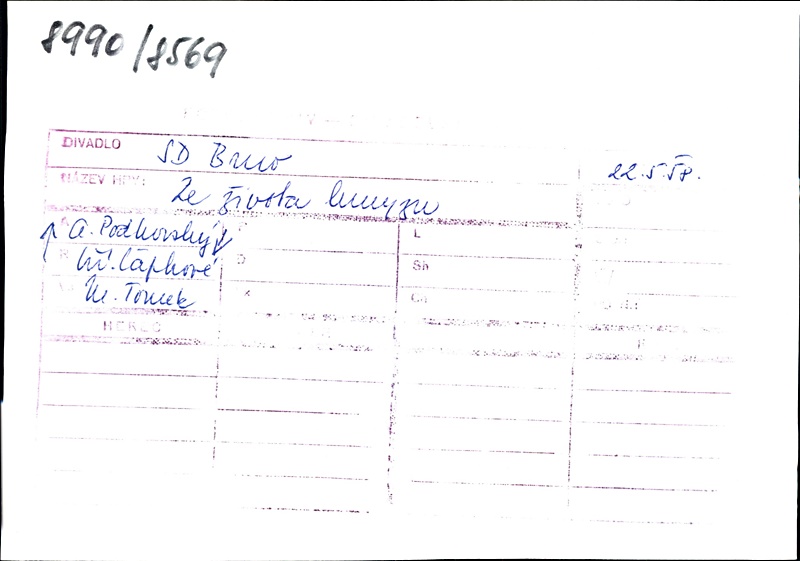 8990/8569
DIVADLO SD Brno
22.5.58.
NÁZEV HRY: Ze života hmyzu
A. Podhorský
Čapkové
M. Tomek
L
D
Sh
HEREC